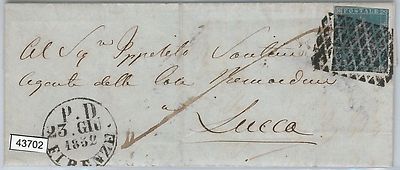 POSTALE
Al Sig.re Ippolito Santini
Agente delle Case
a
Lucca
P. D
23. GIU
1852
FIRENZE.
43702